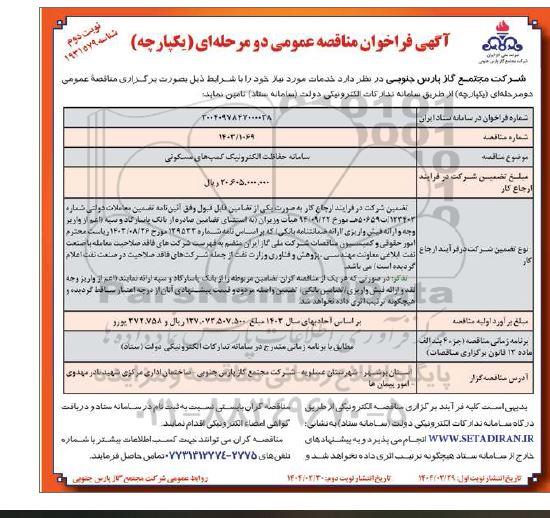 نوبت دوم
شناسه ۱۹۳۱۵۷۹
آگهی فراخوان مناقصه عمومی دو مرحله‌ای (یکپارچه)
شرکت مجتمع گاز پارس جنوبی
شرکت مجتمع گاز پارس جنوبی در نظر دارد خدمات مورد نیاز خود را با شرایط ذیل بصورت برگزاری مناقصه عمومی
دومرحله‌ای (یکپارچه) از طریق سامانه تدارکات الکترونیکی دولت (سامانه ستاد) تامین نماید:
شماره فراخوان در سامانه ستاد ایران
شماره مناقصه ۱۴۰۳/۱۰۶۹
موضوع مناقصه سامانه حفاظت الکترونیک کمپ‌های مسکونی
مبلغ تضمین شرکت در فرایند ارجاع کار ۲۰.۶۰۵.۰۰۰.۰۰۰ ریال
نوع تضمین شرکت در فرآیند ارجاع کار
تضمین شرکت در فرایند ارجاع کار به صورت یکی از تضامین قابل قبول وفق آئین‌نامه تضمین معاملات دولتی شماره
۱۲۳۴۰۲/ت۵۰۶۵۹هـ مورخ ۹۴/۰۹/۲۲ هیأت وزیران (به استثنای تضامین صادره از بانک پاسارگاد و سپه (اعم از واریز
وجه و ارائه فیش واریزی / ارائه ضمانتنامه بانکی) که بر اساس نامه شماره ۱۲۹۵۳۳ مورخ ۱۴۰۳/۰۸/۲۶ ریاست محترم
امور حقوقی و کمیسیون مناقصات شرکت ملی گاز ایران منضم به فهرست شرکت های فاقد صلاحیت معامله با صنعت
نفت ابلاغی معاونت مهندسی، پژوهش و فناوری وزارت نفت از جمله شرکت‌های فاقد صلاحیت در صنعت نفت اعلام
گردیده است) می باشد.
تذکر: در صورتی که هر یک از مناقصه گران، تضامین مربوطه را از بانک پاسارگاد و سپه ارائه نمایند (اعم از واریز وجه
نقد و ارائه فیش واریزی / تضامین بانکی) تضمین واصله مردود و قیمت پیشنهادی آنان از درجه اعتبار ساقط گردیده و
هیچگونه ترتیب اثری داده نخواهد شد.
مبلغ برآورد اولیه مناقصه بر اساس آحادبهای سال ۱۴۰۳ مبلغ ۱۳۷.۰۷۳.۵۰۷.۵۰۰ ریال و ۳۷۲.۷۵۸ یورو
برنامه زمانی مناقصه (جزء ۶ بند الف ماده ۱۳ قانون برگزاری مناقصات) مطابق با برنامه زمانی مندرج در سامانه تدارکات الکترونیکی دولت (ستاد)
آدرس مناقصه‌گزار استان بوشهر - شهرستان عسلویه - شرکت مجتمع گاز پارس جنوبی - ساختمان اداری مرکزی شهید نادر مهدوی
- امور پیمان ها
بدیهی است کلیه فرآیند برگزاری مناقصه الکترونیکی از طریق
درگاه سامانه تدارکات الکترونیکی دولت (سامانه ستاد) به نشانی:
WWW.SETADIRAN.IR انجام می پذیرد و به پیشنهادهای
خارج از سامانه ستاد هیچگونه ترتیب اثری داده نخواهد شد و
مناقصه گران بایستی نسبت به ثبت نام در سامانه ستاد و دریافت
گواهی امضاء الکترونیکی اقدام نمایند.
مناقصه گران می توانند جهت کسب اطلاعات بیشتر با شماره
تلفن‌های ۰۷۷۳۱۳۱۲۲۷۴-۲۲۷۵ تماس حاصل فرمایند.
تاریخ انتشار نوبت اول: ۱۴۰۴/۰۲/۲۹
تاریخ انتشار نوبت دوم: ۱۴۰۴/۰۲/۳۰
روابط عمومی شرکت مجتمع گاز پارس جنوبی